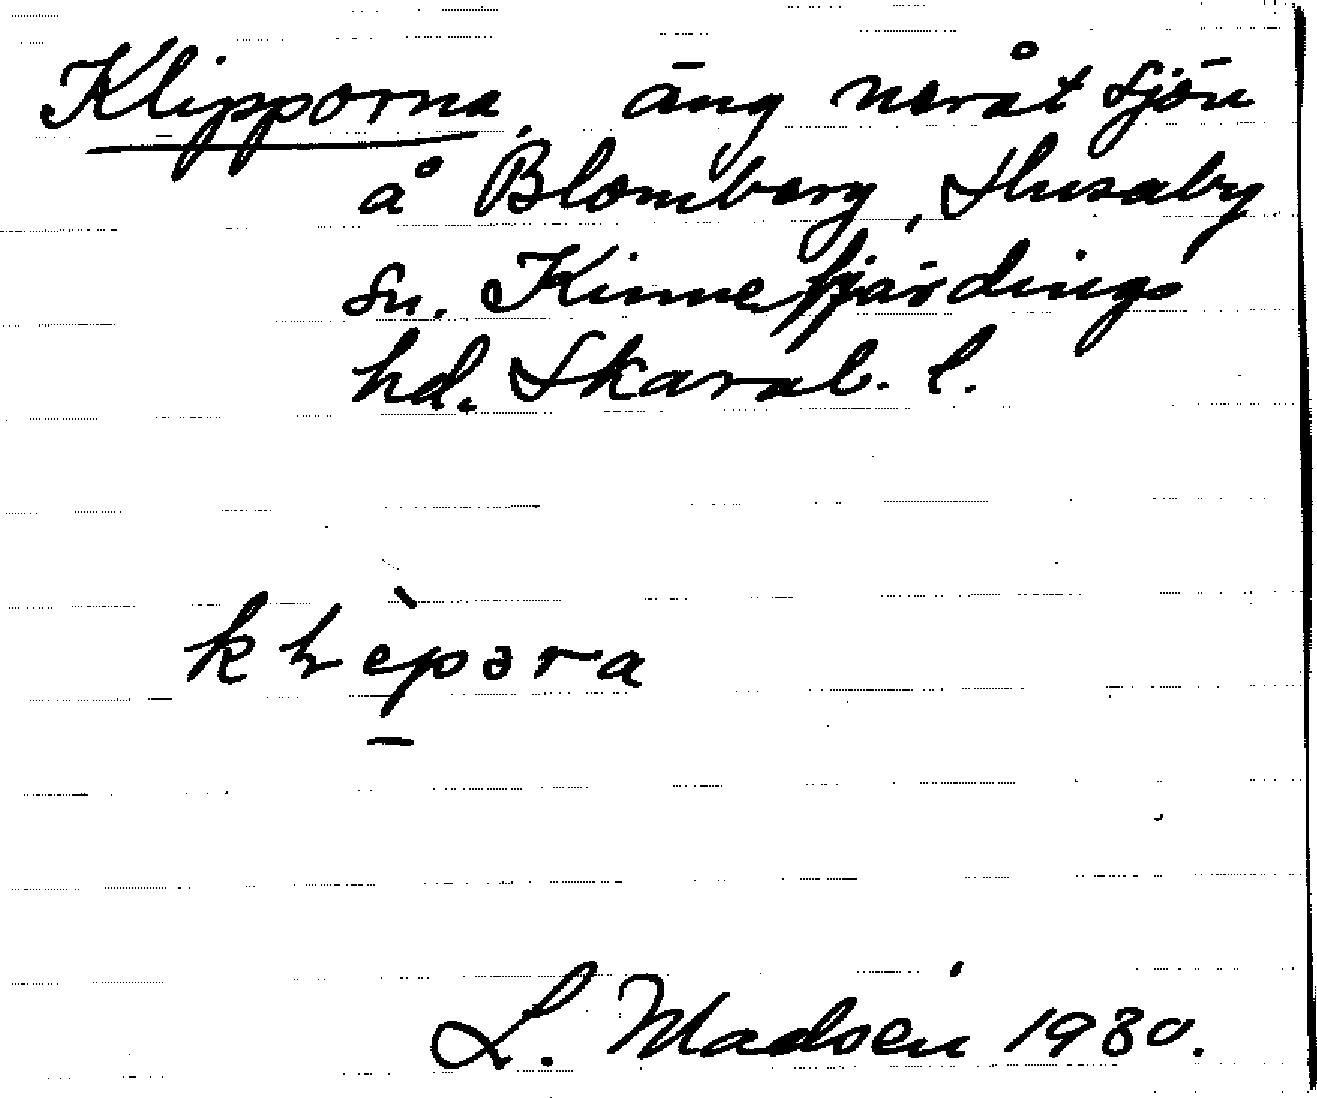 Klipporna, äng neråt sjön
å Blomberg, Husaby
sn. Kinnefjärdings
hd. Skarab. l.
kḷèpəra
L. Madsén 1930.